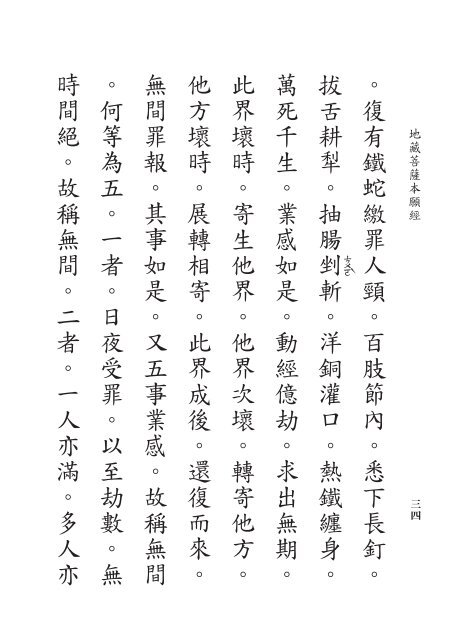 地藏菩薩本願經
三四
。復有鐵蛇繳罪人頸。百肢節內。悉下長釘。
拔舌耕犁。抽腸剉ㄘㄨㄛˋ斬。洋銅灌口。熱鐵纏身。
萬死千生。業感如是。動經億劫。求出無期。
此界壞時。寄生他界。他界次壞。轉寄他方。
他方壞時。展轉相寄。此界成後。還復而來。
無間罪報。其事如是。又五事業感。故稱無間
。何等為五。一者。日夜受罪。以至劫數。無
時間絕。故稱無間。二者。一人亦滿。多人亦